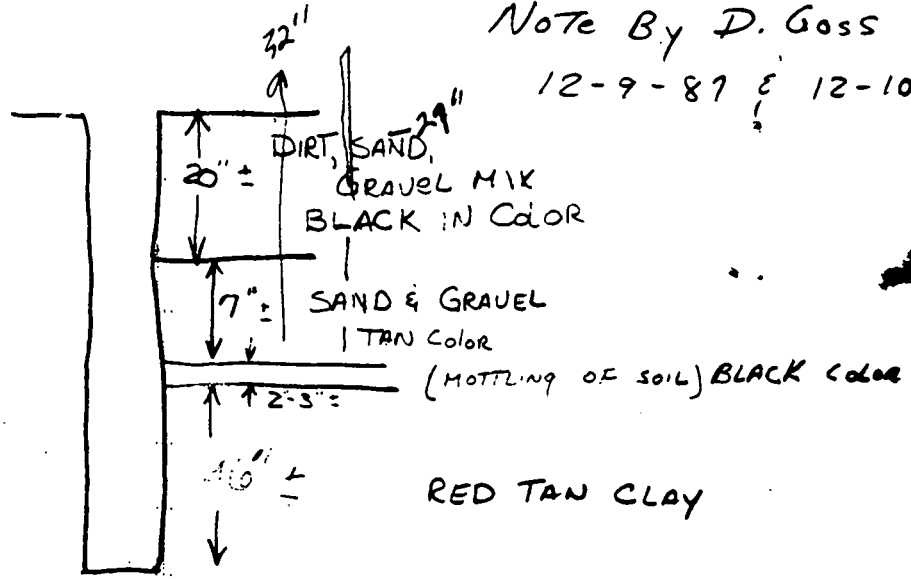 Note By D. Goss
12-9-87 & 12-10
32"
29"
20" ±
DIRT, SAND,
GRAVEL MIX
BLACK IN COLOR
7" ±
SAND & GRAVEL
TAN COLOR
(MOTTLING OF SOIL) BLACK COLOR
2-3" ±
RED TAN CLAY